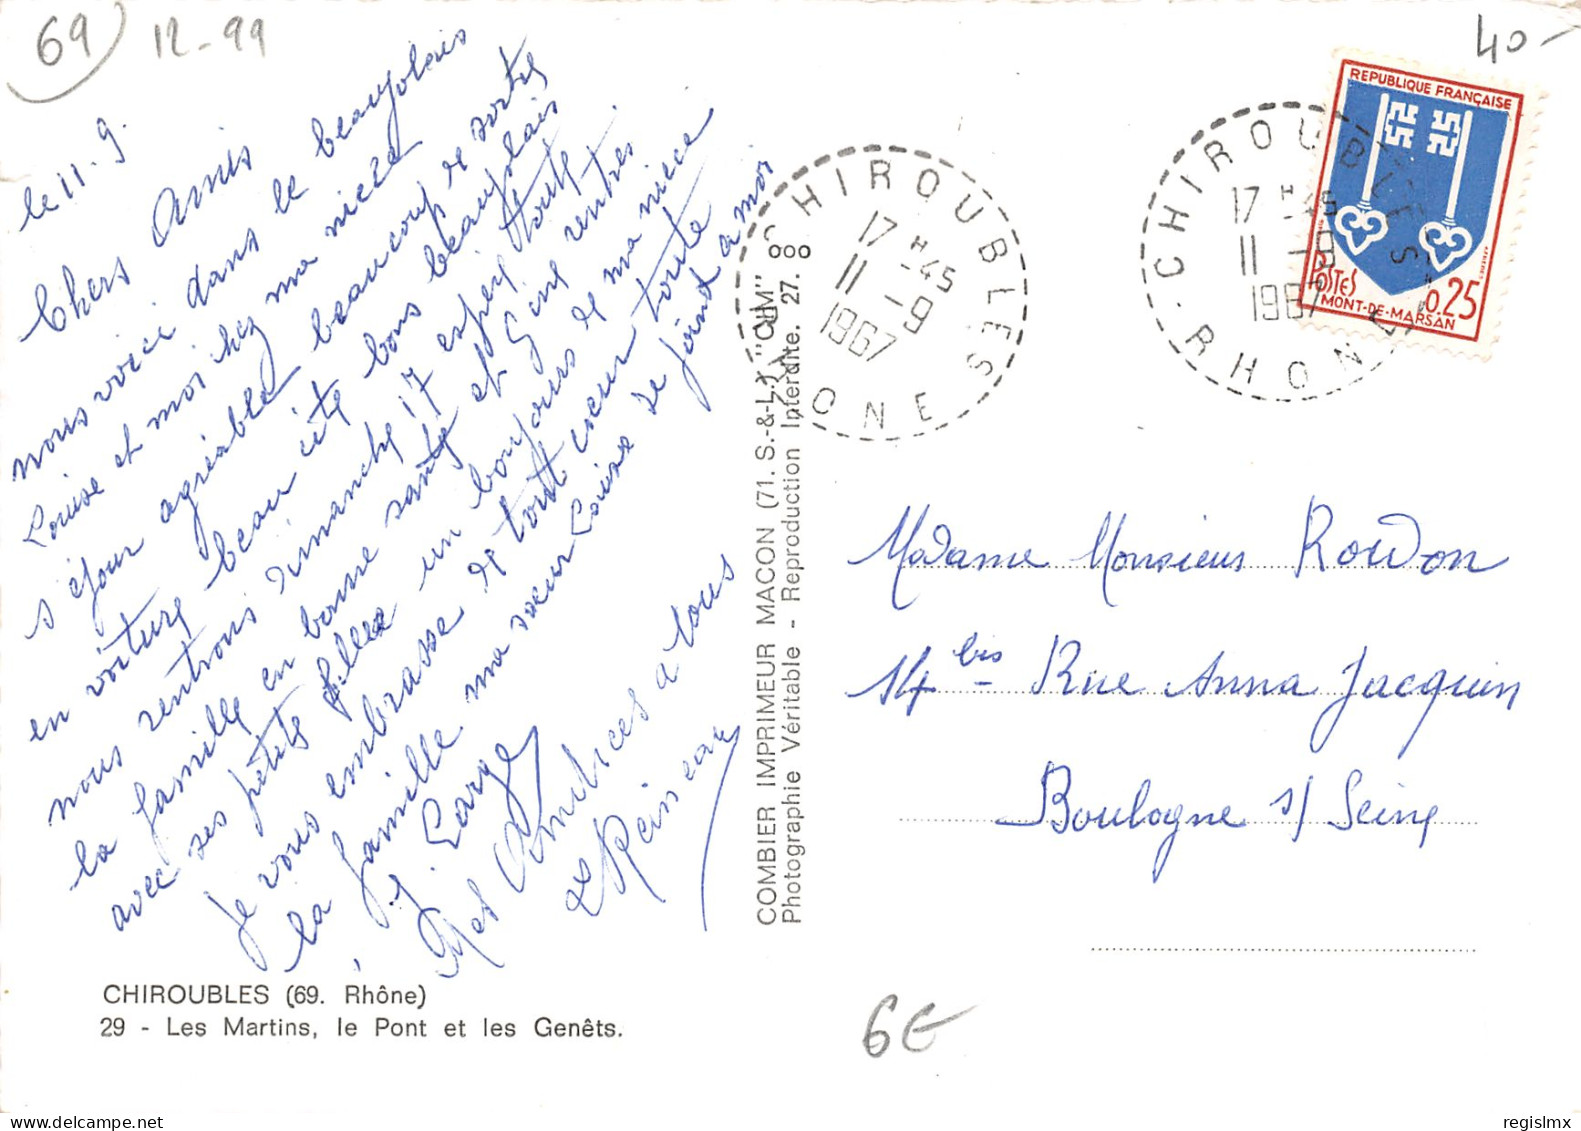 69
12-99
40-
le 11.9.
Chers Amis
nous voici dans le beaujolais
Louise et moi chez ma nièce
séjour agréable beaucoup de sortie
en voiture beau site bons beaujolais
nous rentrons dimanche 17 espère toute
la famille en bonne santé et Ginj rentrés
avec ses petites filles un bonjours de ma niece
Je vous embrasse de tout coeur toute
la famille ma soeur Louise se joind a moi
J. Large
Mes Amitiées a tous
CHIROUBLES (69. Rhône)
29 - Les Martins, le Pont et les Genêts.
COMBIER IMPRIMEUR MACON (71. S.-&-L.) "CIM"
Photographie Véritable - Reproduction Interdite. 27.
CHIROUBLES
17 H -45
11 -9
1967
RHONE
CHIROUBLES
17 H -45
11 -9
1967
RHONE
REPUBLIQUE FRANÇAISE
POSTES
0,25
MONT-DE-MARSAN
Madame Monsieur Roudon
14 bis Rue Anna Jacquin
Boulogne s/ Seine
6€
regislmx